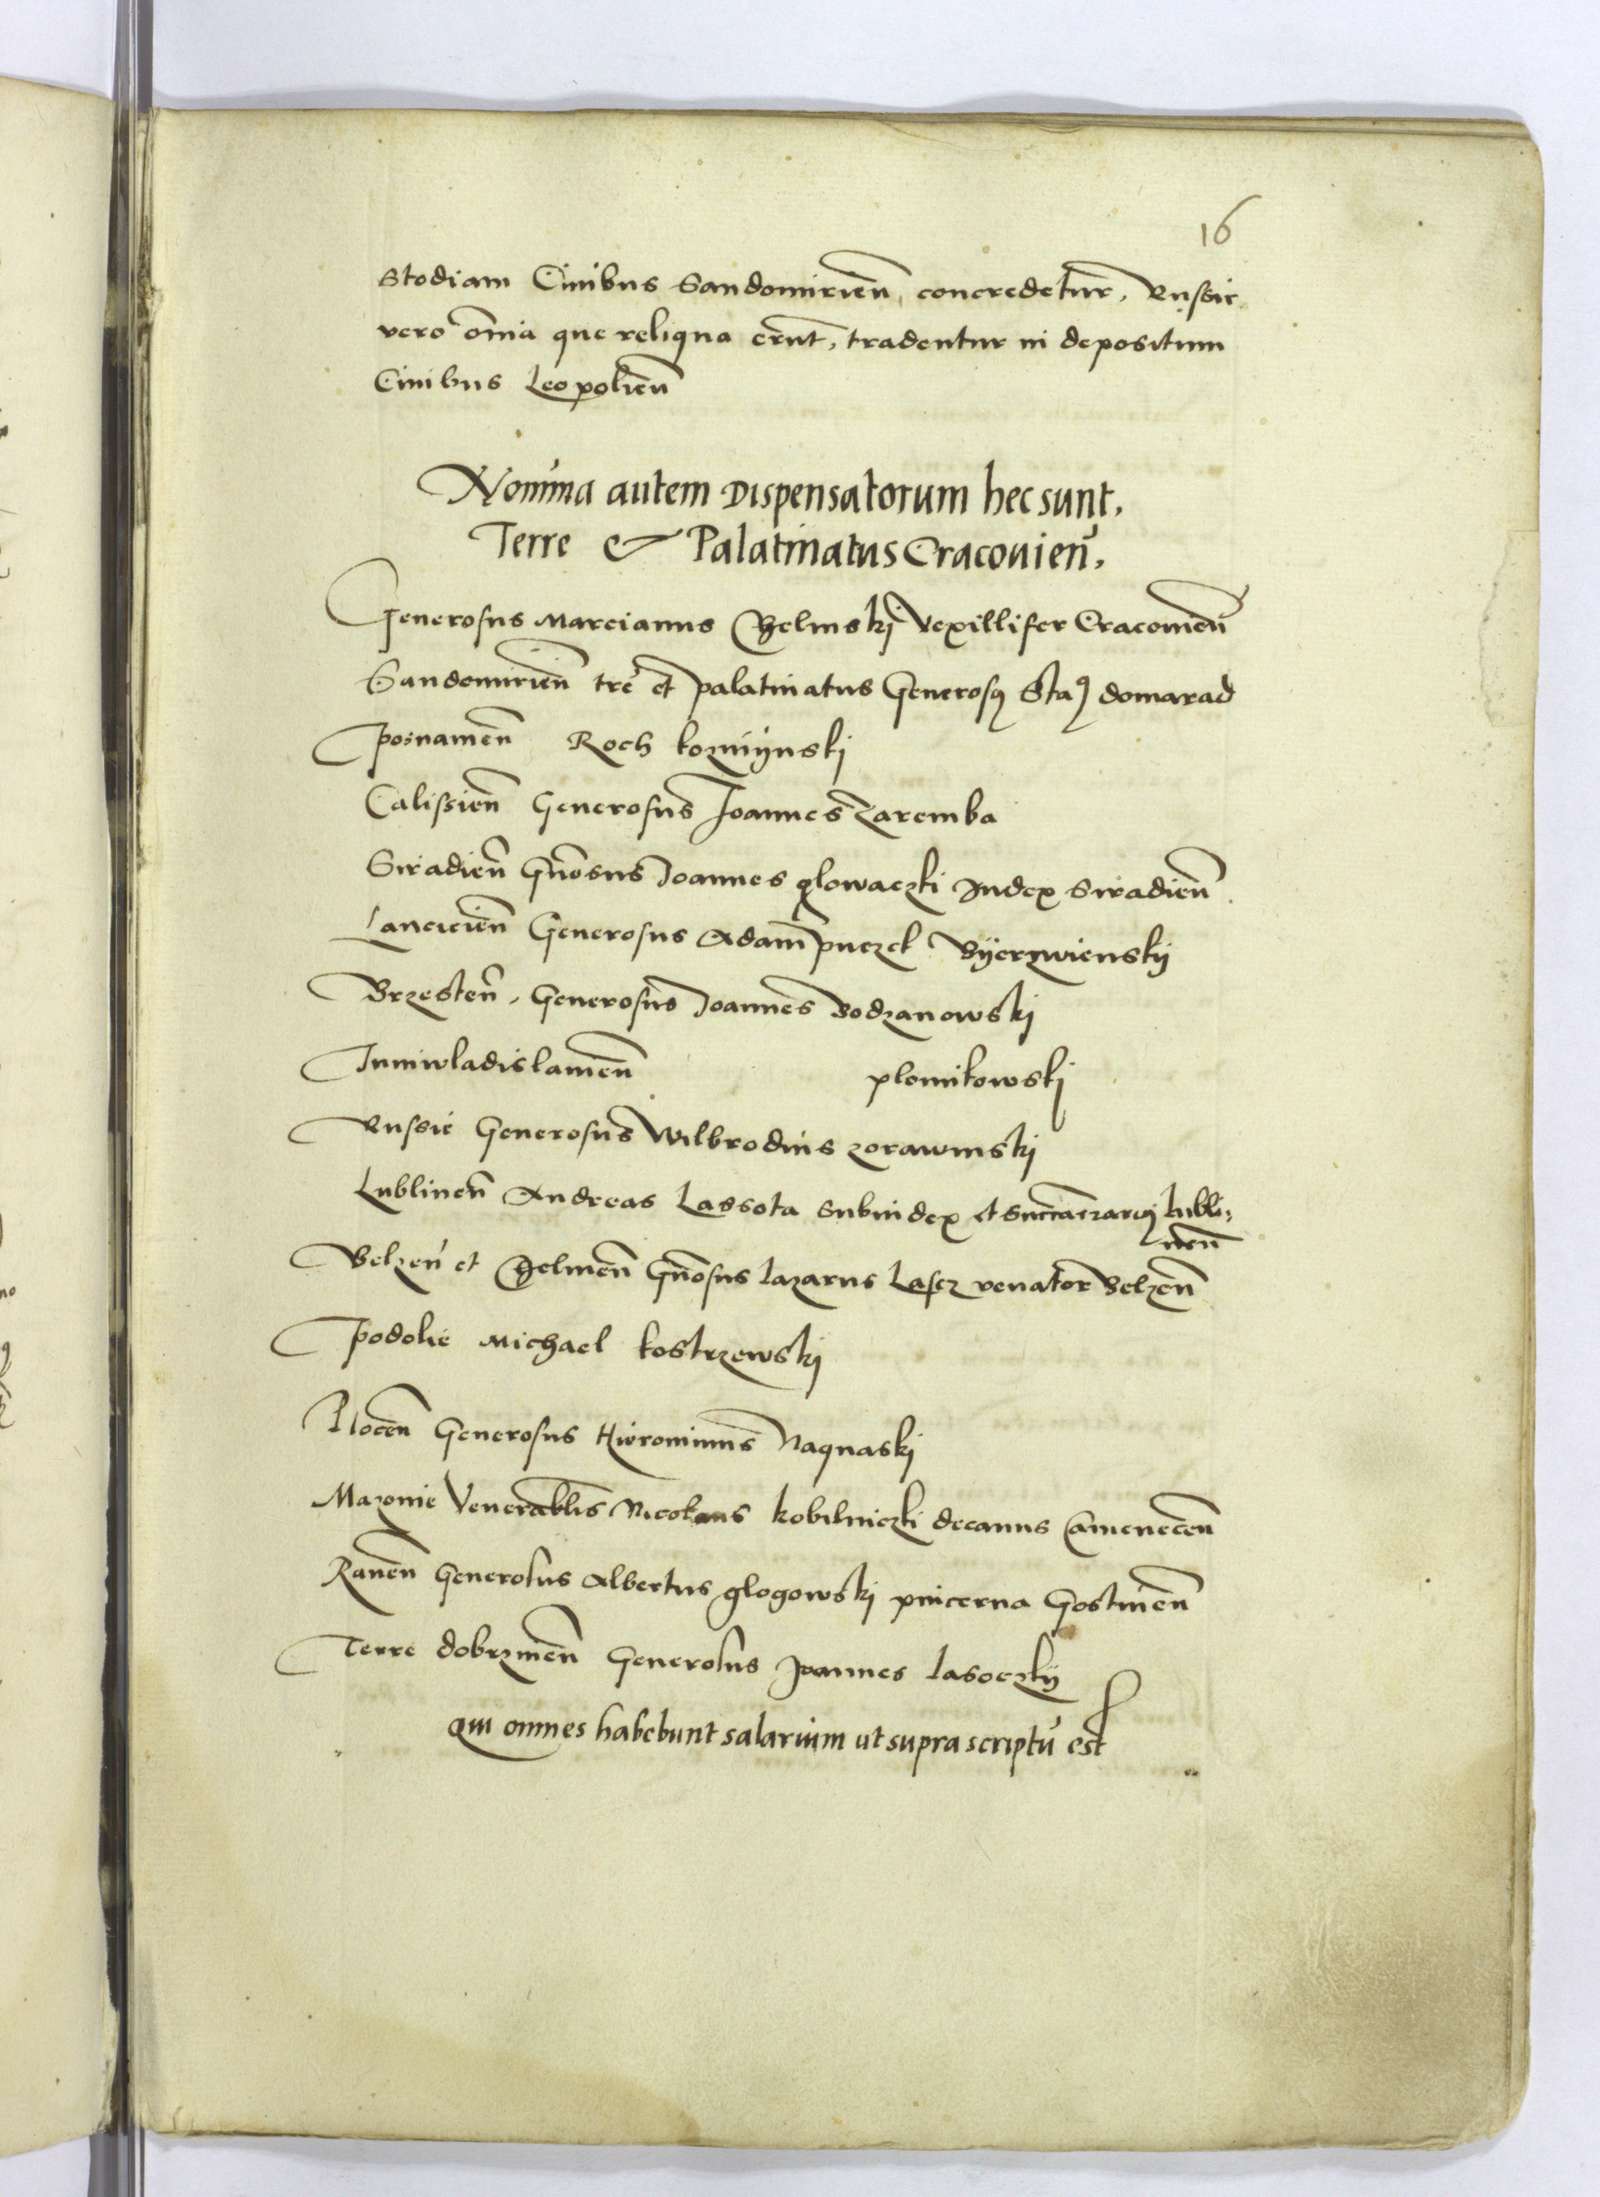 16
stodiam Ciuibus Sandomirień concredetur, Russie
vero oĩa que reliqua erũt, tradentur in depositum
Ciuibus Leopolień
Nomina autem Dispensatorum hec sunt,
Terre & Palatinatus Cracouień,
Generosus Marcianus Chelmskj Vexillifer Cracouień
Sandomirień trẽ et palatinatus Generosꝫ Staꝫ domarad
Posnanień Roch kozmÿnskj
Calissień Generosus Joannes Zaremba
Siradień Gñosus Joannes glowaczki Judex Siradień
Lancicień Generosus Adam puczek Byerzwienskÿ
Brzesteń, Generosus Joannes Bodzanowskj
Juniwladislauień plomikowskj
Russie Generosus Wilbrodius zorawinskj
Lublineń Andreas Lassota Subiudex et Succamerariꝫ Lubli,
neń
Belzeń et Chelmeń Gñosus Lazarus Lascz venator Belzeń
Podolie Michael kostrzewskj
Ploceń Generosus Hieronimus Naqnaskj
Mazouie Venerabilis Nicolaus kobilniczki decanus Cameneceń
Raueń Generosus Albertus glogowskj pincerna Gostineń
Terre dobrzineń Generosus Joannes lasoczkÿ
Qui omnes habebunt salarium ut supra scriptũ est